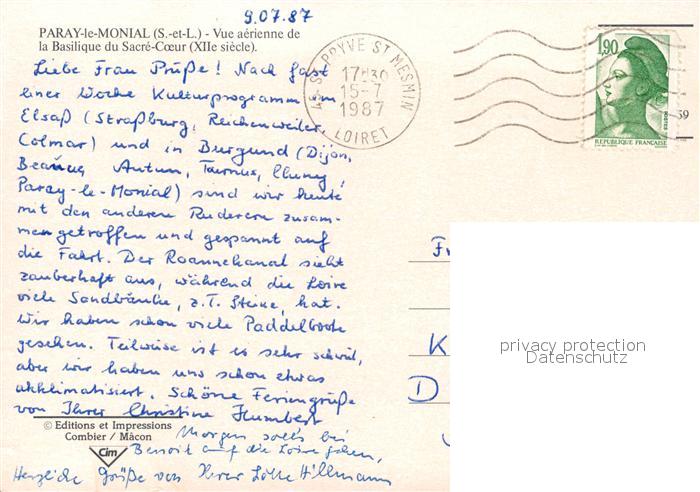 9.07.87
PARAY-le-MONIAL (S.-et-L.) - Vue aérienne de
la Basilique du Sacré-Cœur (XIIe siècle).
Liebe Frau Pruße! Nach fast
einer Woche Kulturprogramm im
Elsaß (Straßburg, Reichenweiler,
Colmar) und in Burgund (Dijon,
Beaune, Autun, Tournus, Cluny,
Paray-le-Monial) sind wir heute
mit den anderen Ruderern zusam-
mengetroffen und gespannt auf
die Fahrt. Der Roannekanal sieht
zauberhaft aus, während die Loire
viele Sandbänke, z.T. Steine, hat.
Wir haben schon viele Paddelboote
gesehen. Teilweise ist es sehr schwül,
aber wir haben uns schon etwas
akklimatisiert. Schöne Feriengrüße
von Ihrer Christine Humbert
© Editions et Impressions
Combier / Mâcon
Cim
Morgen soll's bei
Benoit auf die Loire gehen,
Herzliche Grüße von Ihrer Lotte Hillmann
45 ST PRYVE ST MESMIN
17H30
15-7
1987
LOIRET
1,90
POSTES
REPUBLIQUE FRANÇAISE
59
F
K
D
privacy protection
Datenschutz